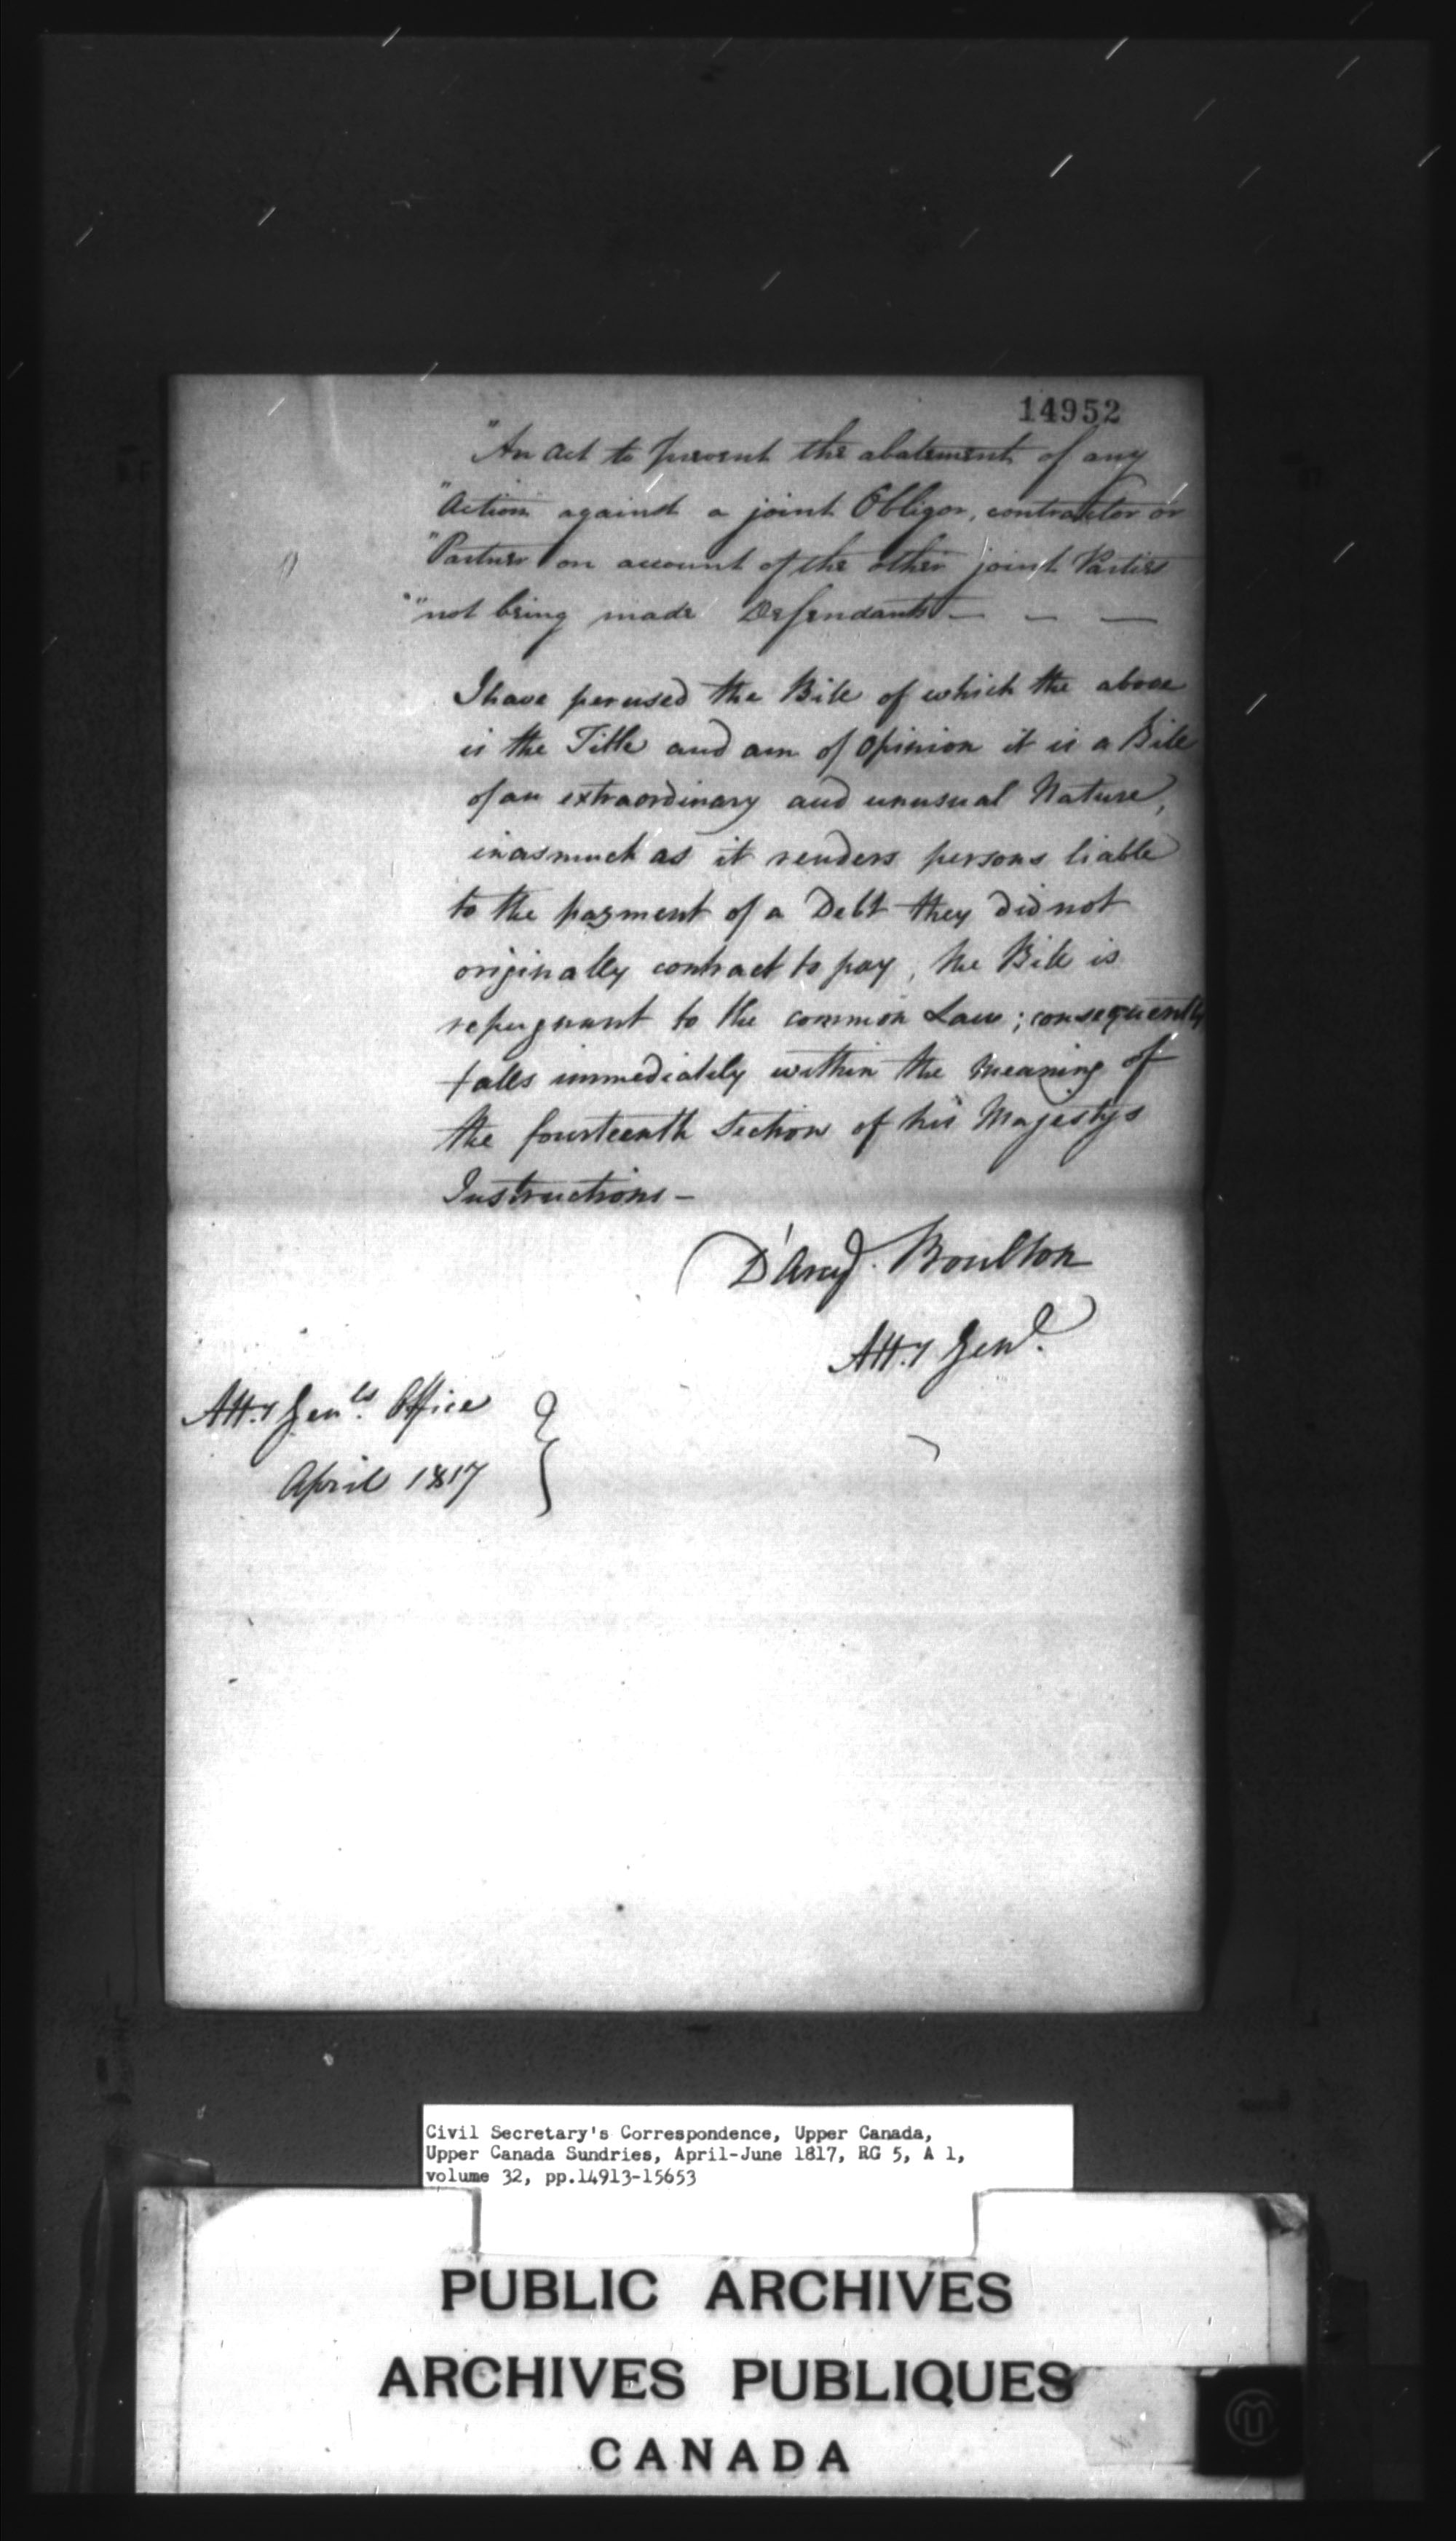 14952
"An Act to prevent the abatement of any
"Action against a joint Obligor, contractor or
"Partner on account of the other joint Parties
"not being made Defendants — — —
I have perused the Bill of which the above
is the Title and am of Opinion it is a Bill
of an extraordinary and unusual Nature,
inasmuch as it renders persons liable
to the payment of a Debt they did not
originally contract to pay, the Bill is
repugnant to the common Law; consequently
falls immediately within the meaning of
the fourteenth Section of his Majestys
Instructions —
D'Arcy Boulton
Atty Genl.
Atty Genls. Office
April 1817
Civil Secretary's Correspondence, Upper Canada,
Upper Canada Sundries, April-June 1817, RG 5, A 1,
volume 32, pp.14913-15653
PUBLIC ARCHIVES
ARCHIVES PUBLIQUES
CANADA